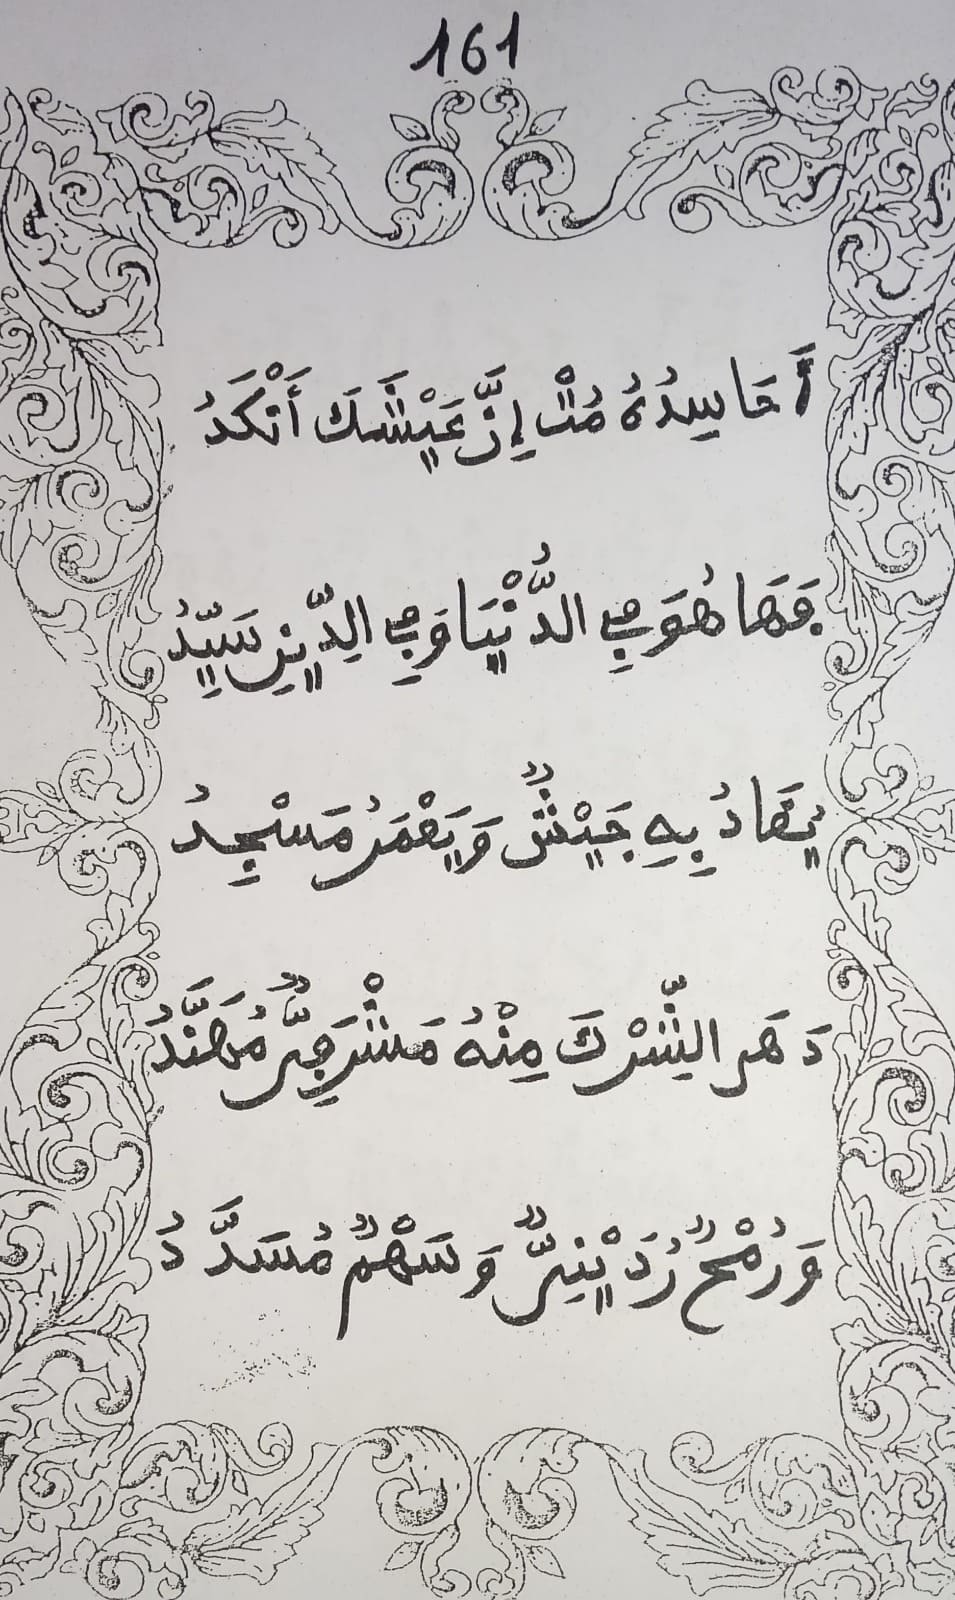 161
أَحَاسِدُهُ مُتْ إِنَّ عَيْشَكَ أَنْكَدُ
فَهَا هُوَ فِي الدُّنْيَا وَفِي الدِّينِ سَيِّدُ
يُقَادُ بِهِ جَيْشٌ وَيَعْمَرُ مَسْجِدُ
دَهَرِ الشِّرْكَ مِنْهُ مَشْرَفِيٌّ مُهَنَّدُ
وَرُمْحٌ رُدَيْنِيٌّ وَسَهْمٌ مُسَدَّدُ